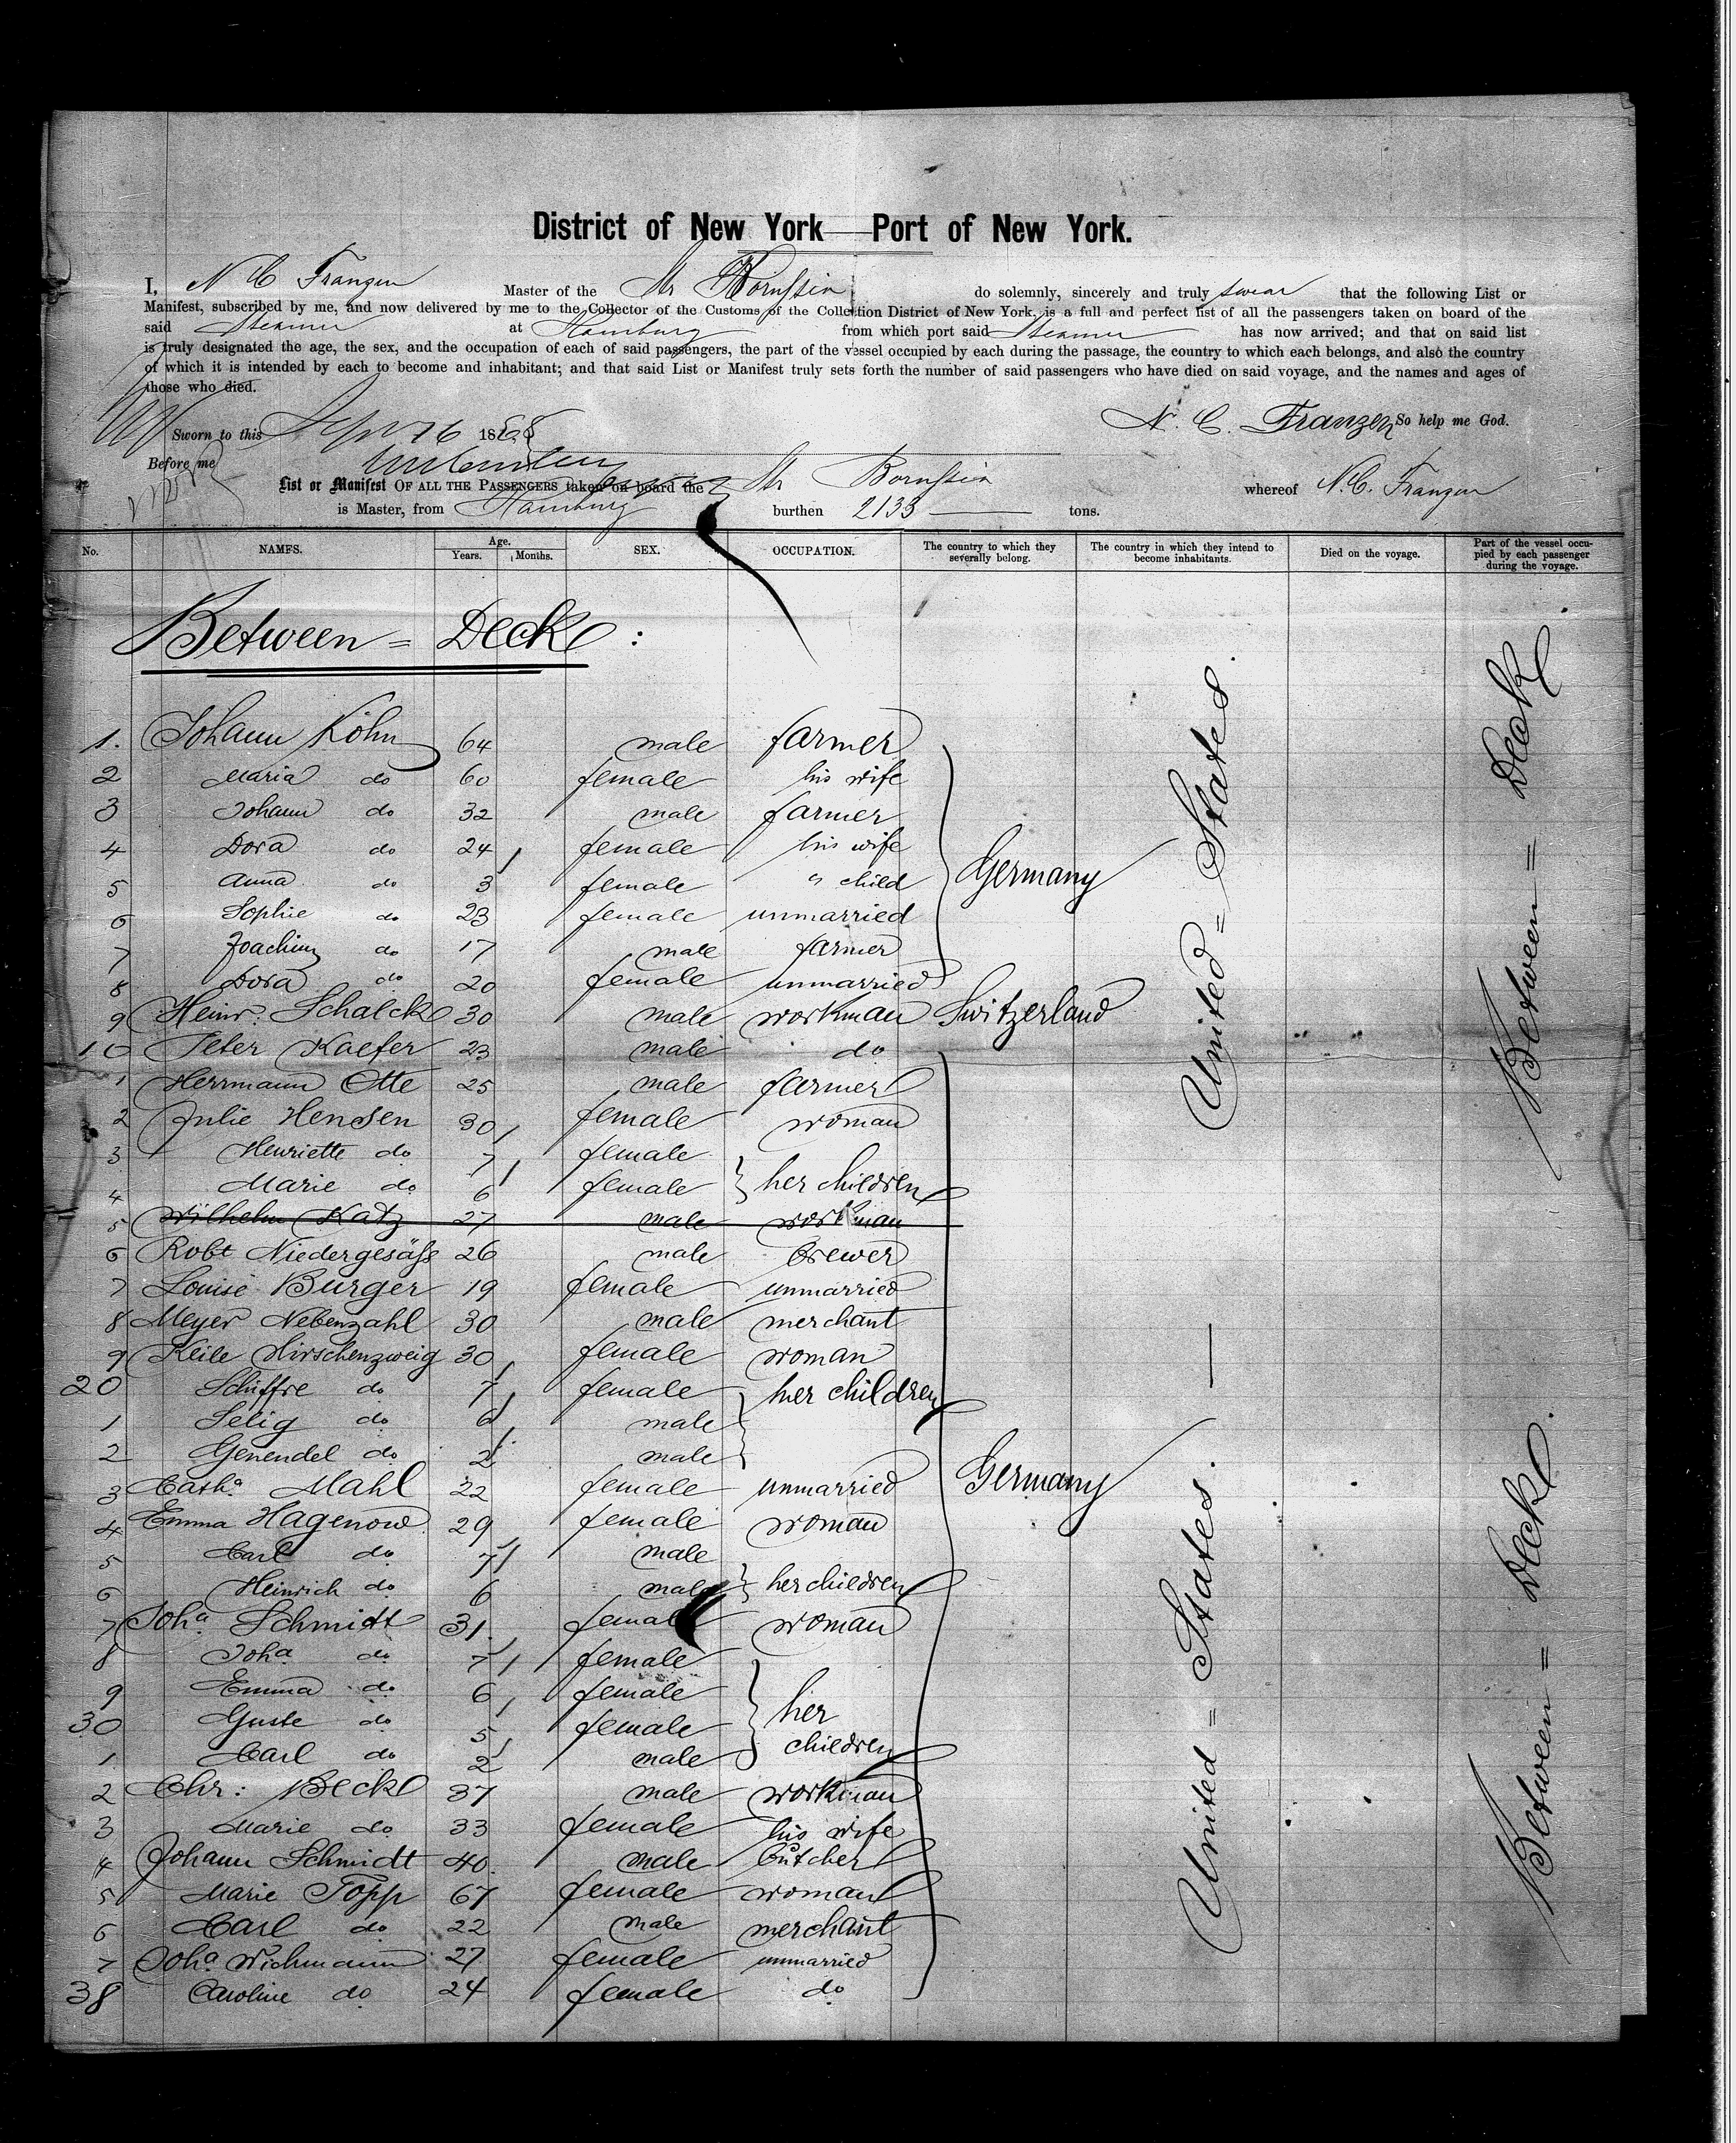 District of New York — Port of New York.
I, N C Franzen Master of the Str Borussia do solemnly, sincerely and truly swear that the following List or
Manifest, subscribed by me, and now delivered by me to the Collector of the Customs of the Collection District of New York, is a full and perfect list of all the passengers taken on board of the
said Steamer at Hamburg from which port said Steamer has now arrived; and that on said list
is truly designated the age, the sex, and the occupation of each of said passengers, the part of the vessel occupied by each during the passage, the country to which each belongs, and also the country
of which it is intended by each to become and inhabitant; and that said List or Manifest truly sets forth the number of said passengers who have died on said voyage, and the names and ages of
those who died.
Sworn to this Sept 16 186 N. C. Franzen So help me God.
Before me
List or Manifest OF ALL THE PASSENGERS taken on board the Str Borussia whereof N.C. Franzen
is Master, from Hamburg burthen 2133 tons.
No. NAMES. Age. Years. Months. SEX. OCCUPATION. The country to which they severally belong. The country in which they intend to become inhabitants. Died on the voyage. Part of the vessel occupied by each passenger during the voyage.
Between = Deck :
1. Johann Köhn 64 male farmer
2 Maria do 60 female his wife
3 Johann do 32 male farmer
4 Dora do 24 female his wife
5 Anna do 3 female " child
6 Sophie do 23 female unmarried
7 Joachim do 17 male farmer
8 Dora do 20 female unmarried
Germany
9 Heinr. Schalck 30 male workman Switzerland
10 Peter Kaefer 23 male do
1 Herrmann Otte 25 male farmer
2 Julie Hensen 30 female woman
3 Henriette do 7 female
4 Marie do 6 female her children
5 Wilhelm Katz 27 male workman
6 Robt Niedergesäß 26 male brewer
7 Louise Burger 19 female unmarried
8 Meyer Nebenzahl 30 male merchant
9 Keile Hirschenzweig 30 female woman
20 Schiffre do 7 female her children
1 Selig do 6 male
2 Genendel do 2 male
3 Cath.a Mahl 22 female unmarried
4 Emma Hagenow 29 female woman
5 Carl do 7 male
6 Heinrich do 6 male her children
7 Joh.a Schmidt 31 female woman
8 Joh.a do 7 female
9 Emma do 6 female her
30 Guste do 5 female
1 Carl do 2 male children
2 Chr: Beck 37 male workman
3 Marie do 33 female his wife
4 Johann Schmidt 40 male butcher
5 Marie Topp 67 female woman
6 Carl do 22 male merchant
7 Joh.a Wichmann 27 female unmarried
38 Caroline do 24 female do
Germany
United = States.
United = States.
Between = Deck.
Between = Deck.